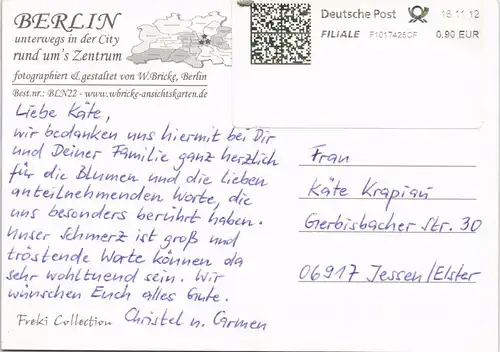 BERLIN
unterwegs in der City
rund um's Zentrum
fotographiert & gestaltet von W.Bricke, Berlin
Best.nr.: BLN22 - www.wbricke-ansichtskarten.de
Deutsche Post
16 11 12
FILIALE F1017425CF 0.90 EUR
Liebe Käte,
wir bedanken uns hiermit bei Dir
und Deiner Familie ganz herzlich
für die Blumen und die lieben
anteilnehmenden Worte, die
uns besonders berührt haben.
Unser Schmerz ist groß und
tröstende Worte können da
sehr wohltuend sein. Wir
wünschen Euch alles Gute.
Christel u. Carmen
Freki Collection
Frau
Käte Krapiau
Gerbisbacher Str. 30
06917 Jessen/Elster